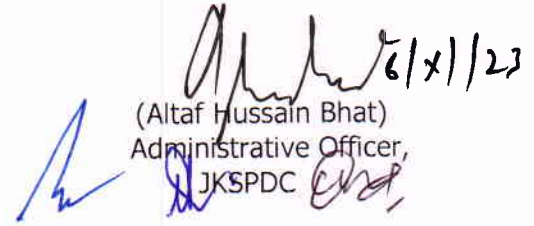 6/XI/23
(Altaf Hussain Bhat)
Administrative Officer,
JKSPDC